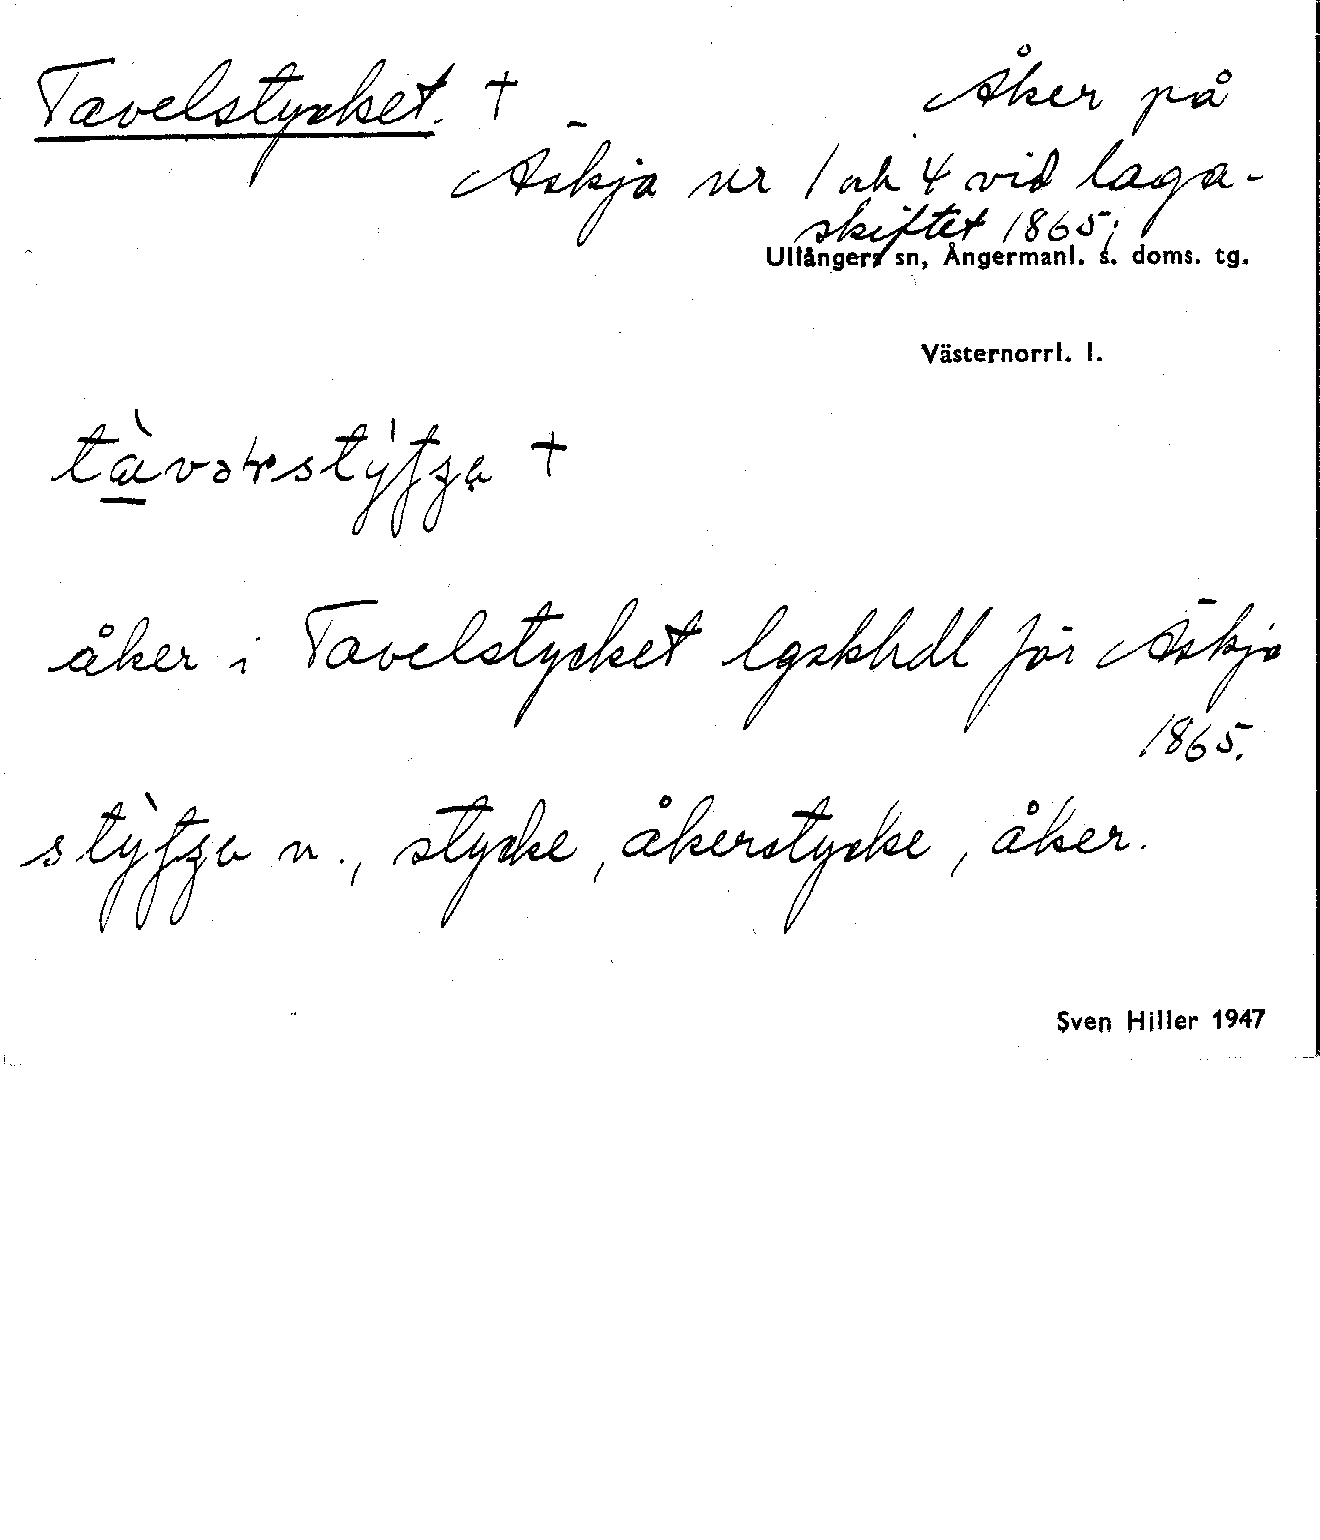 Tavelstycket. +
Åker på
Äskja nr 1 och 4 vid laga-
skiftet 1865;
Ullångers sn, Ångermanl. s. doms. tg.
Västernorrl. l.
åker i Tavelstycket lgskhdl för Äskja
1865.
n., stycke, åkerstycke, åker.
Sven Hiller 1947